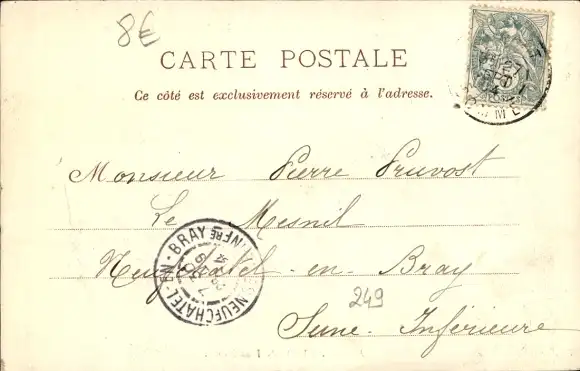 8€
CARTE POSTALE
Ce côté est exclusivement réservé à l'adresse.
Monsieur Pierre Pruvost
Le Mesnil
Neufchatel-en-Bray
249
Seine-Inférieure
NEUFCHATEL-EN-BRAY